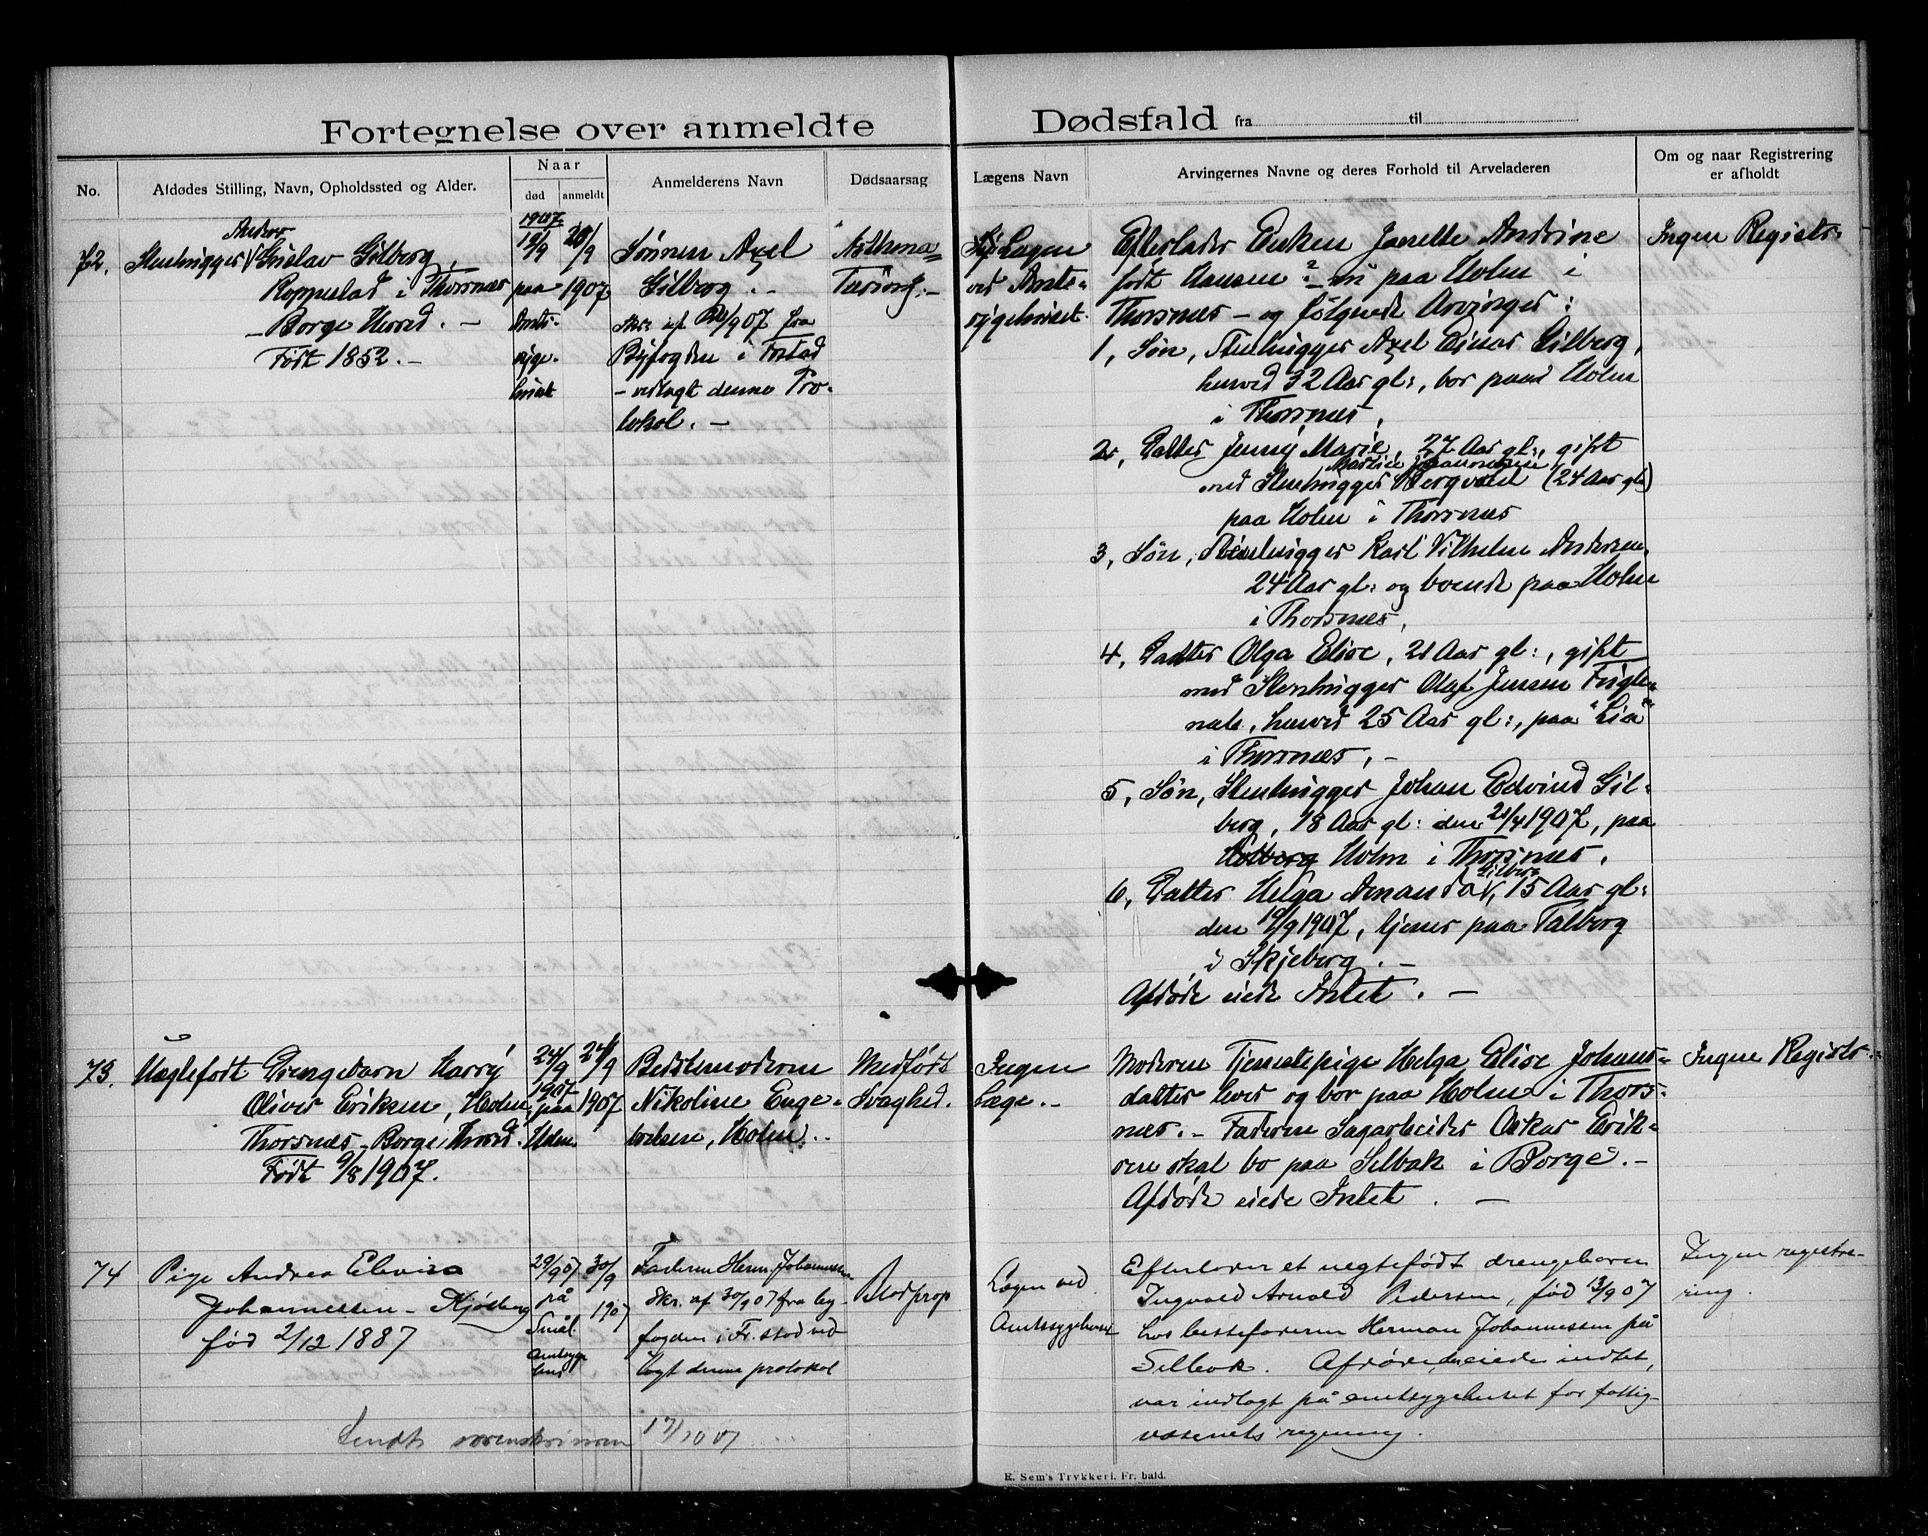 Fortegnelse over anmeldte Dødsfald fra til
No.
Afdødes Stilling, Navn, Opholdssted og Alder.
Naar
død
anmeldt
Anmelderens Navn
Dødsaarsag
Lægens Navn
Arvingernes Navne og deres Forhold til Arveladeren
Om og naar Registrering
er afholdt
72.
Anders
Stenhugger Gustav Gilberg,
i Thorsnæs
Borge Herred. —
Født 1852. —
1907
paa
Amts-
syge-
huset
/9
1907
Sønnen Axel
Gilberg. —
Skr. af /9 07 fra
Byfogden i Frstad
— vedlagt denne Pro-
tokol. —
Asthma
Tæring. —
Lægen
ved Amts-
sygehuset.
Efterlader Enken Janette Andrine
født Hansen ? — nu paa Holm i
Thorsnæs — og følgende Arvinger:
1, Søn, Stenhugger Axel Einar Gilberg,
henved 32 Aar gl:, bor paa Holm
i Thorsnæs,
2, Datter Jenny Marie, 27 Aar gl:, gift
med Stenhugger Martin Johannesen Bergvald (24 Aar gl:)
paa Holm i Thorsnæs
3, Søn, Stenhugger Karl Vilhelm Andersen,
24 Aar gl: og boende paa Holm
i Thorsnæs,
4, Datter Olga Elise, 21 Aar gl:, gift
med Stenhugger Olaf Jensen Fugle-
, henved 25 Aar gl:, paa "Lia"
i Thorsnæs, —
5, Søn, Stenhugger Johan Edvind Gil-
berg, 18 Aar gl: den 21/4 1907, paa
Holm i Thorsnæs.
6, Datter Helga Amanda Gilberg, 15 Aar gl:
den 19/9 1907, tjener paa Talberg
i Skjeberg. —
Afdøde eiede Intet. —
Ingen Registr.
73.
Uægtefødt Drengebarn Harry
Oliver Eriksen, Holm,
Thorsnæs, Borge Herred.
Født 9/8 1907.
24/9
1907
paa
Holm.
24/9
1907
Bedstemoderen
Nikoline Enge-
bretsen, Holm. —
Medfødt
Svaghed.
Ingen
Læge. —
Moderen Tjenestepige Helga Elise Johans-
datter lever og bor paa Holm i Thors-
næs. — Faderen Sagarbeider Oskar Erik-
sen skal bo paa Selbak i Borge. —
Afdøde eiede Intet. —
Ingen Registr.
74
Pige Andrea Elevira
Johannessen — Kjølberg
fød 2/12 1887
29/9 07
på
Smål.
amtsyge
hus
30/9
1907
Faderen Herm. Johannessen
Skr. af 30/9 07 fra by-
fogden i Fr.stad ved-
lagt denne protokol
Blodprop
Lægen ved
Amtssygehuset
Efterlader et uegtefødt drengebarn
Ingvald Arnold Pedersen, fød 13/9 07
hos bestefaderen Herman Johannessen på
Selbak. Afdøde eiede indtet,
var indlagt på amtssygehuset for fattig-
væsenets regning.
Ingen registre-
ring.
Sendt sorenskriveren 17/10 07
E. Sem's Trykkeri, Fr.hald.